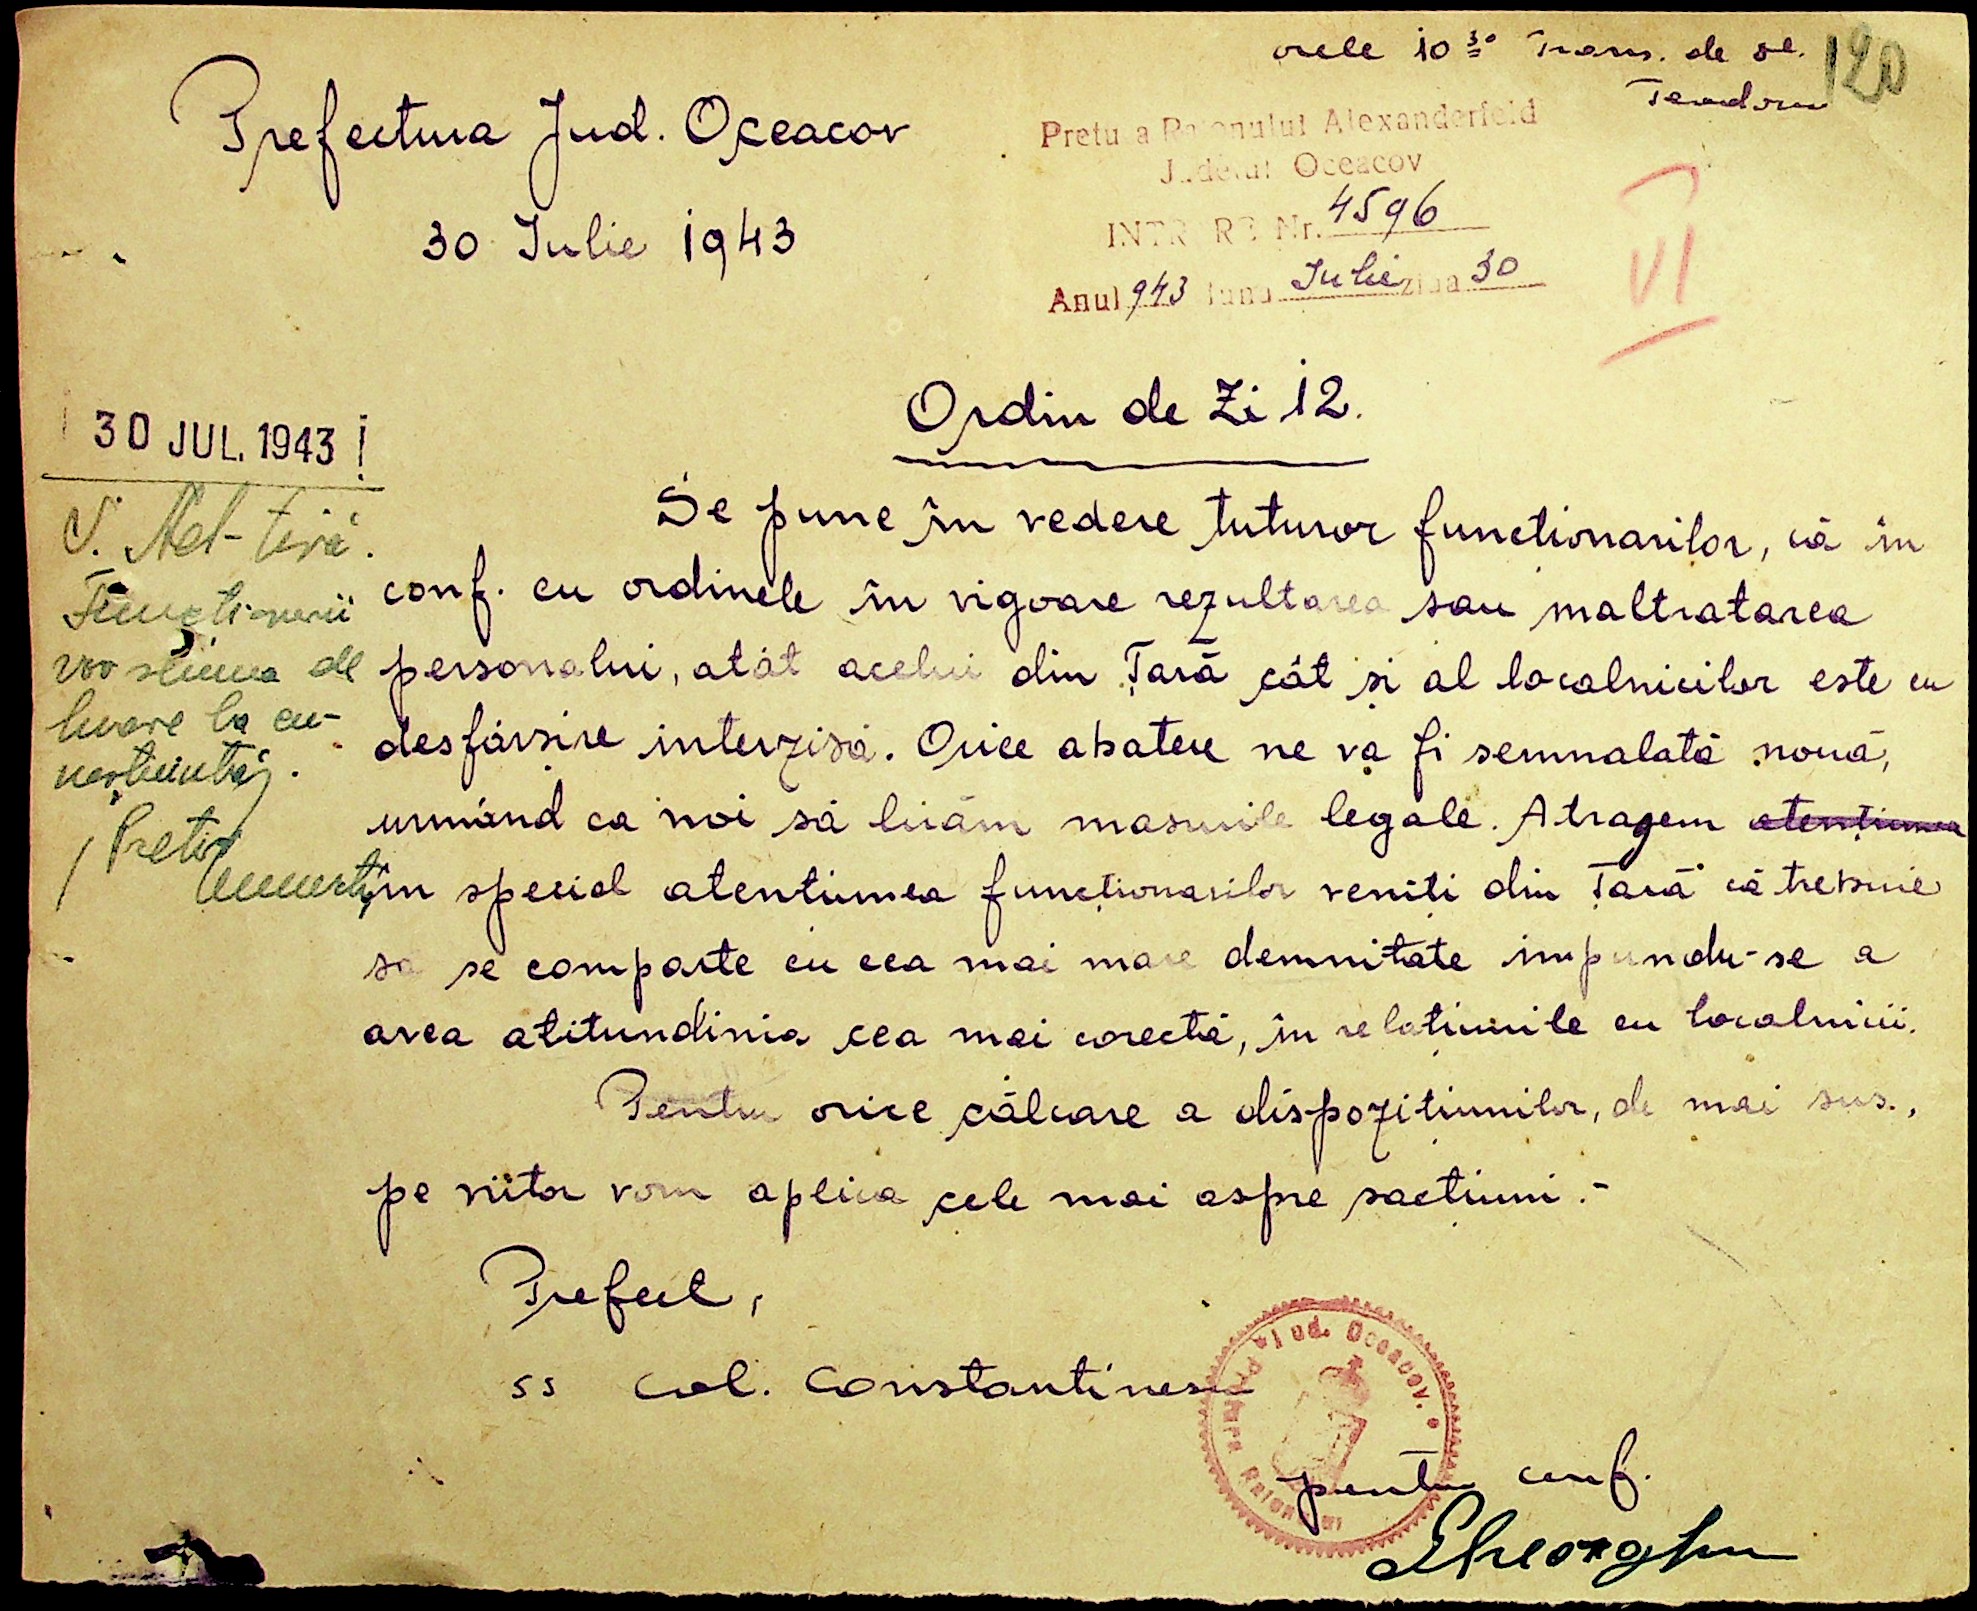 orele 10 30 Trans. de
120
Prefectura Jud. Oceacov
30 Iulie 1943
Pretu a Raionului Alexanderfeld
Județul Oceacov
INTRARE Nr. 4596
Anul 943 luna Iulie ziua 30
VI
Ordin de Zi 12.
30 JUL. 1943
Se pune în vedere tuturor funcționarilor, că în
conf. cu ordinele în vigoare rezultarea sau maltratarea
personalui, atât acelui din Țară cât și al localnicilor este cu
desfârșire interzisă. Orice abatere ne va fi semnalată nouă,
urmând ca noi să luăm masurile legale. Atragem atențiunea
în special atentiunea funcționarilor veniți din Țară că trebuie
sa se comparte cu cea mai mare demnitate impundu-se a
avea atitundinia cea mai corectă, în relațiunile cu localnicii.
Pentru orice călcare a dispozițiunilor, de mai sus.,
pe viitor vom aplica cele mai aspre sacțiuni.-
S.
Funcționarii
vor semna de
luare la cu-
noștiință.
Pretor
Prefect,
ss col. Constantinescu
Jud. Oceacov.
pentru conf.
Gheorghiu